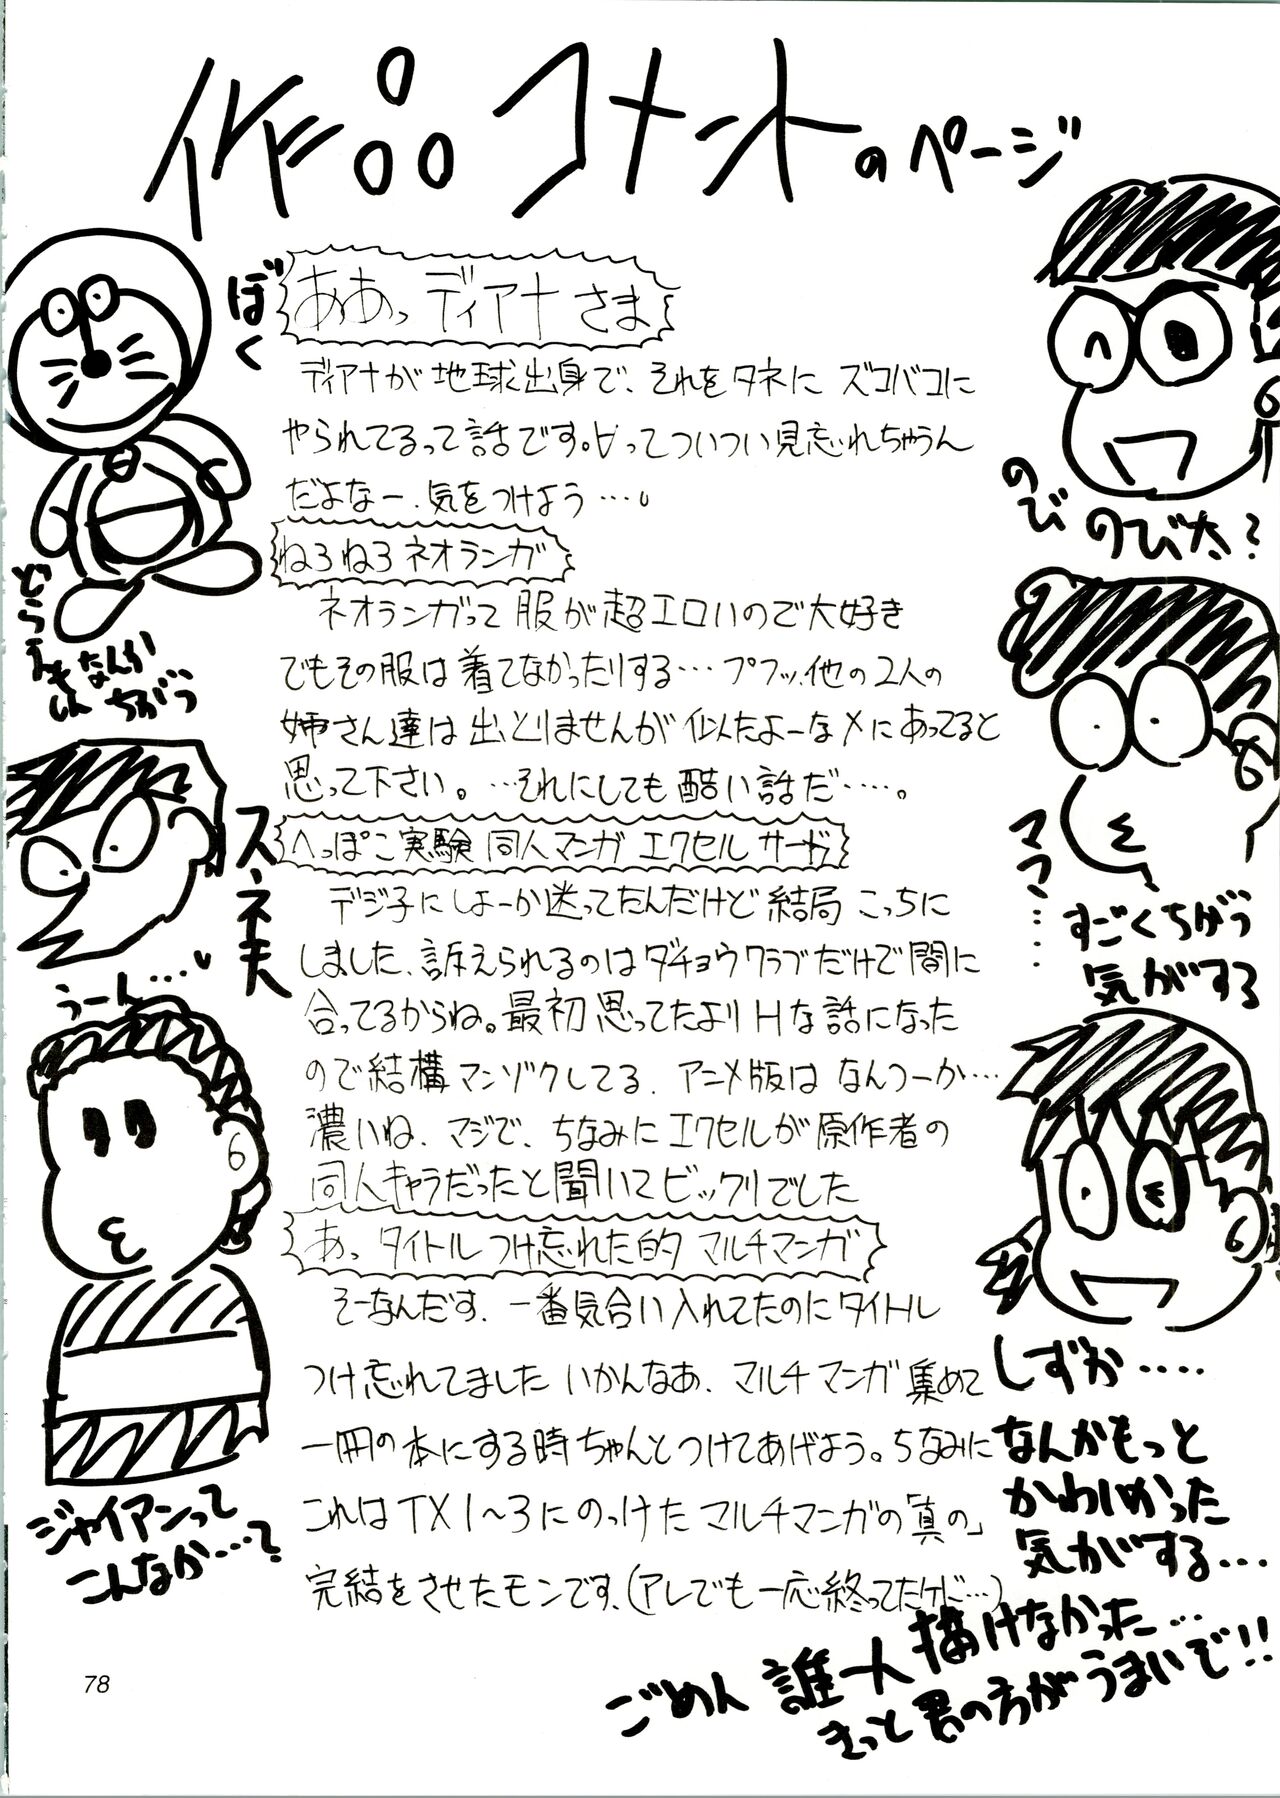 作品コメントのページ
ああっディアナさま
ディアナが地球出身で、それをタネにズコバコに
やられてるって話です。∀ってついつい見忘れちゃうん
だよなー.気をつけよう…。
ねろねろネオランガ
ネオランガって服が超エロいので大好き
でもその服は着てなかったりする…プフッ、他の2人の
姉さん達は出とりませんが似たよーなメにあってると
思って下さい。…それにしても酷い話だ……。
へっぽこ実験同人マンガエクセルサード
デジ子にしよーか迷ってたんだけど結局こっちに
しました、訴えられるのはダチョウクラブだけで間に
合ってるからね。最初思ってたよりHな話になった
ので結構マンゾクしてる.アニメ版はなんつーか…
濃いね、マジで、ちなみにエクセルが原作者の
同人キャラだったと聞いてビックリでした
あっタイトルつけ忘れた的マルチマンガ
そーなんだす.一番気合い入れてたのにタイトル
つけ忘れてました いかんなあ.マルチマンガ集めて
一冊の本にする時ちゃんとつけてあげよう。ちなみに
これはTX1~3にのっけたマルチマンガの「真の」
完結をさせたモンです.(アレでも一応終ってたけど…)
ぼく
どらえもん
なんか
ちがう
スネ夫
うーん…
ジャイアンって
こんなか…?
のび
のび太?
ママ……
すごくちがう
気がする
しずか……
なんかもっと
かわいかった
気がする…
ごめん 誰一人描けなかった…
きっと君の方がうまいぞ!!
78